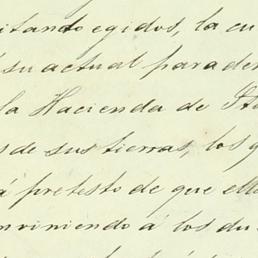 itando egidos, la cu
su actual parader
la Hacienda de Sta
s de sus tierras, los q
á pretesto de que ello
nviniendo á los du